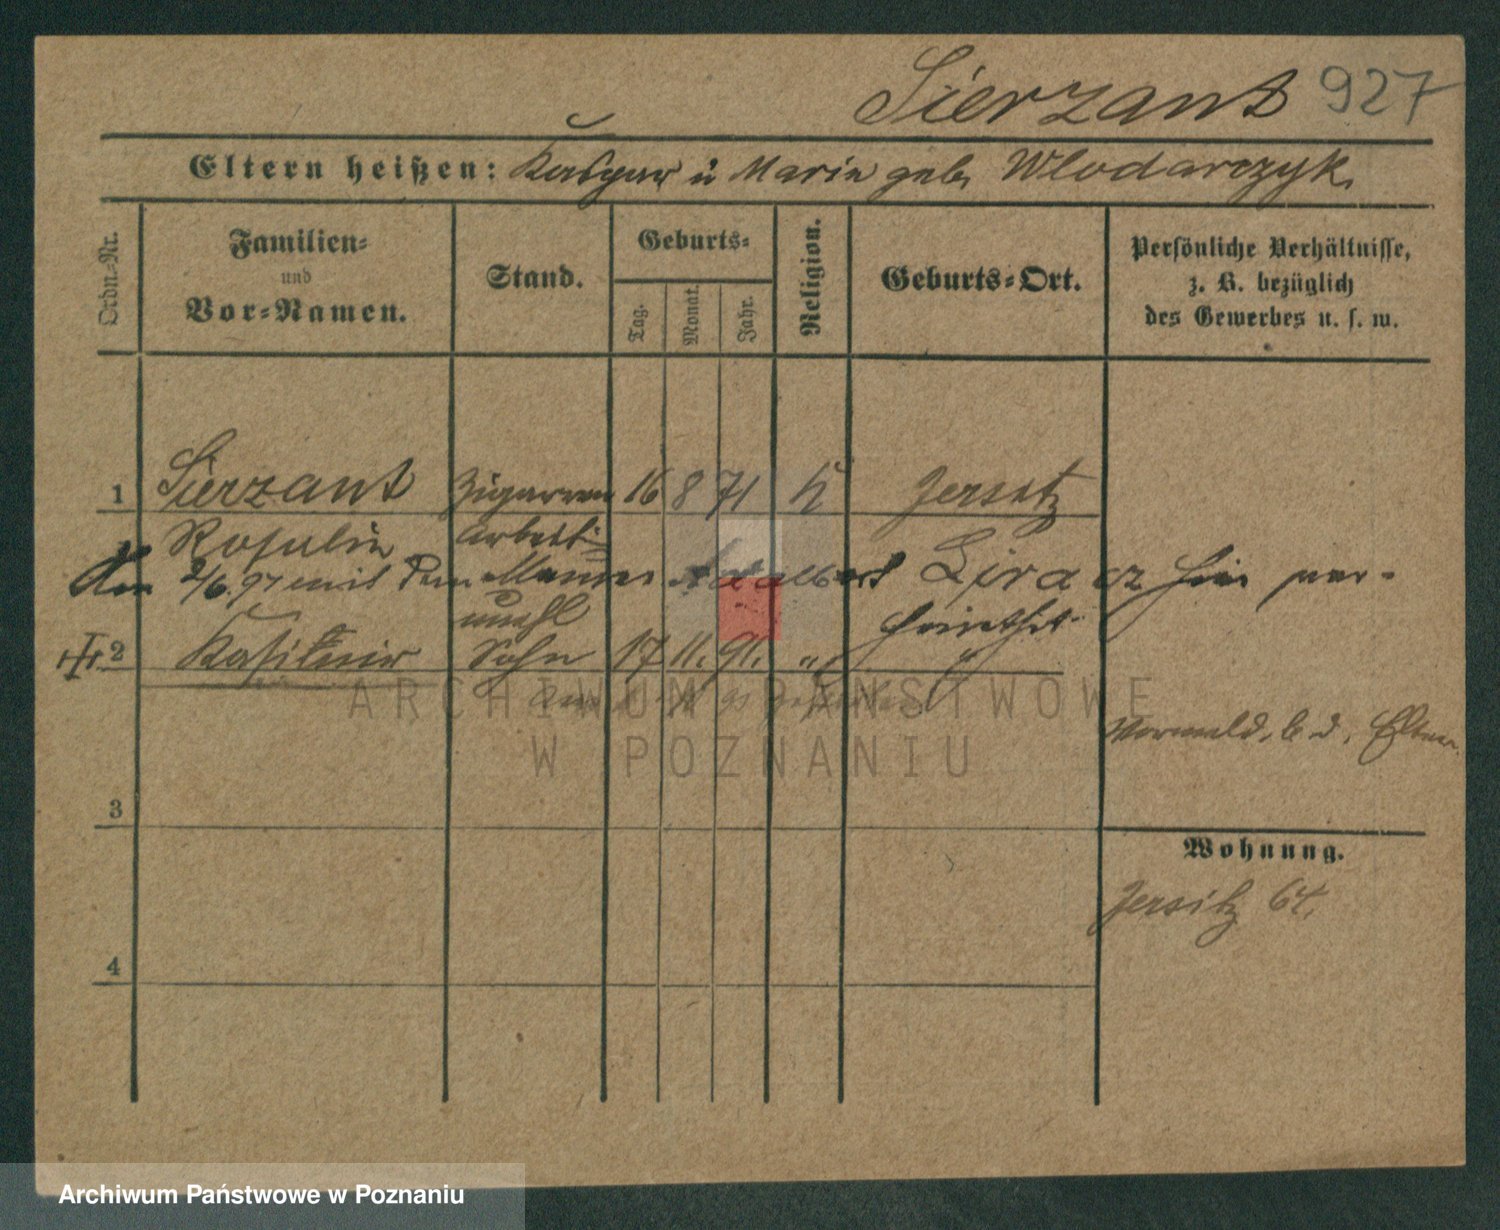 Sierzant 927
Eltern heißen: Kaspar u Marie geb. Wlodarczyk.
Ordn.-Nr.
Familien-
und
Vor-Namen.
Stand.
Geburts-
Tag.
Monat.
Jahr.
Religion.
Geburts-Ort.
Persönliche Verhältnisse,
z. B. bezüglich
des Gewerbes u. s. w.
1 Sierzant Zigarren 16 8 71 k Jersitz
Rosalie arbeit
Am 2/6.97 mit dem Maurer Adalbert hier ver-
unehl heirathet
2 Kasimir Sohn 17 11. 91. " "
ARCHIWUM PAŃSTWOWE
W POZNANIU
b. d. Eltern
3
Wohnung.
Jersitz 64.
4
Archiwum Państwowe w Poznaniu